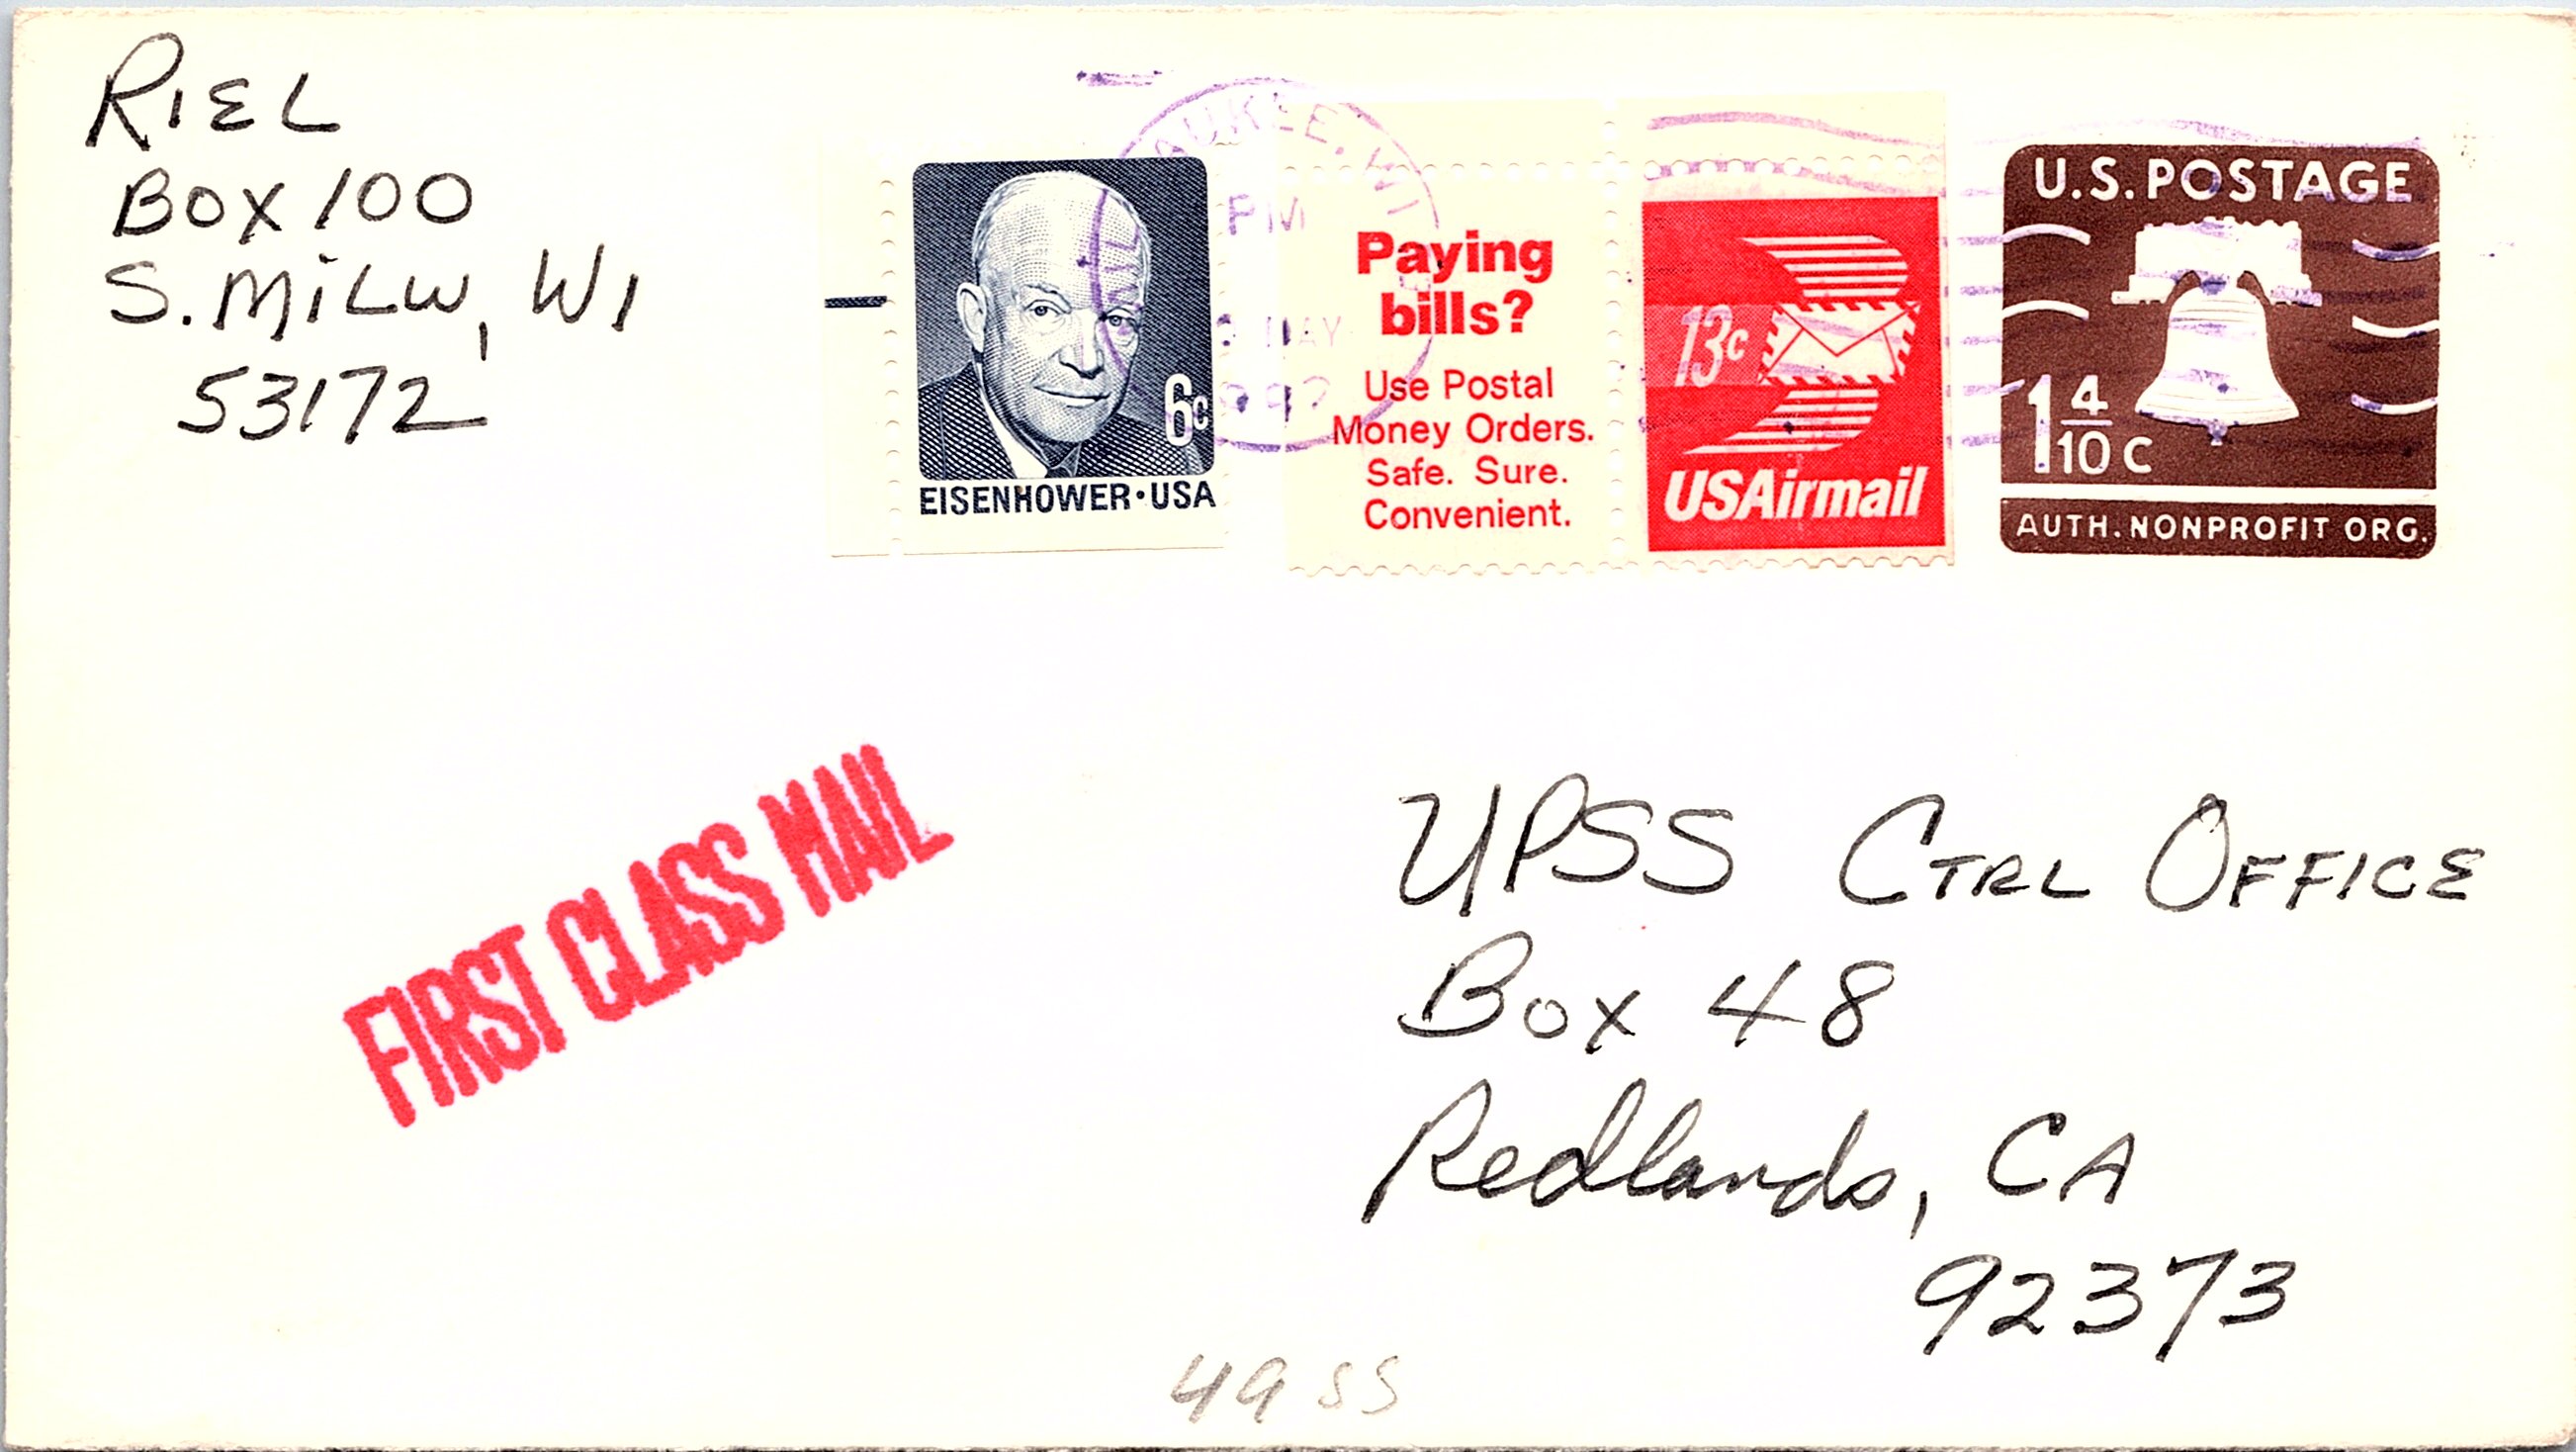 RIEL
BOX 100
S. MILW, WI
53172
AUKEE, WI
PM
MAY
6c
EISENHOWER·USA
Paying
bills?
Use Postal
Money Orders.
Safe. Sure.
Convenient.
13c
USAirmail
U.S. POSTAGE
1 4/10 c
AUTH. NONPROFIT ORG.
FIRST CLASS MAIL
UPSS CTRL OFFICE
Box 48
Redlands, CA
92373
49 SS